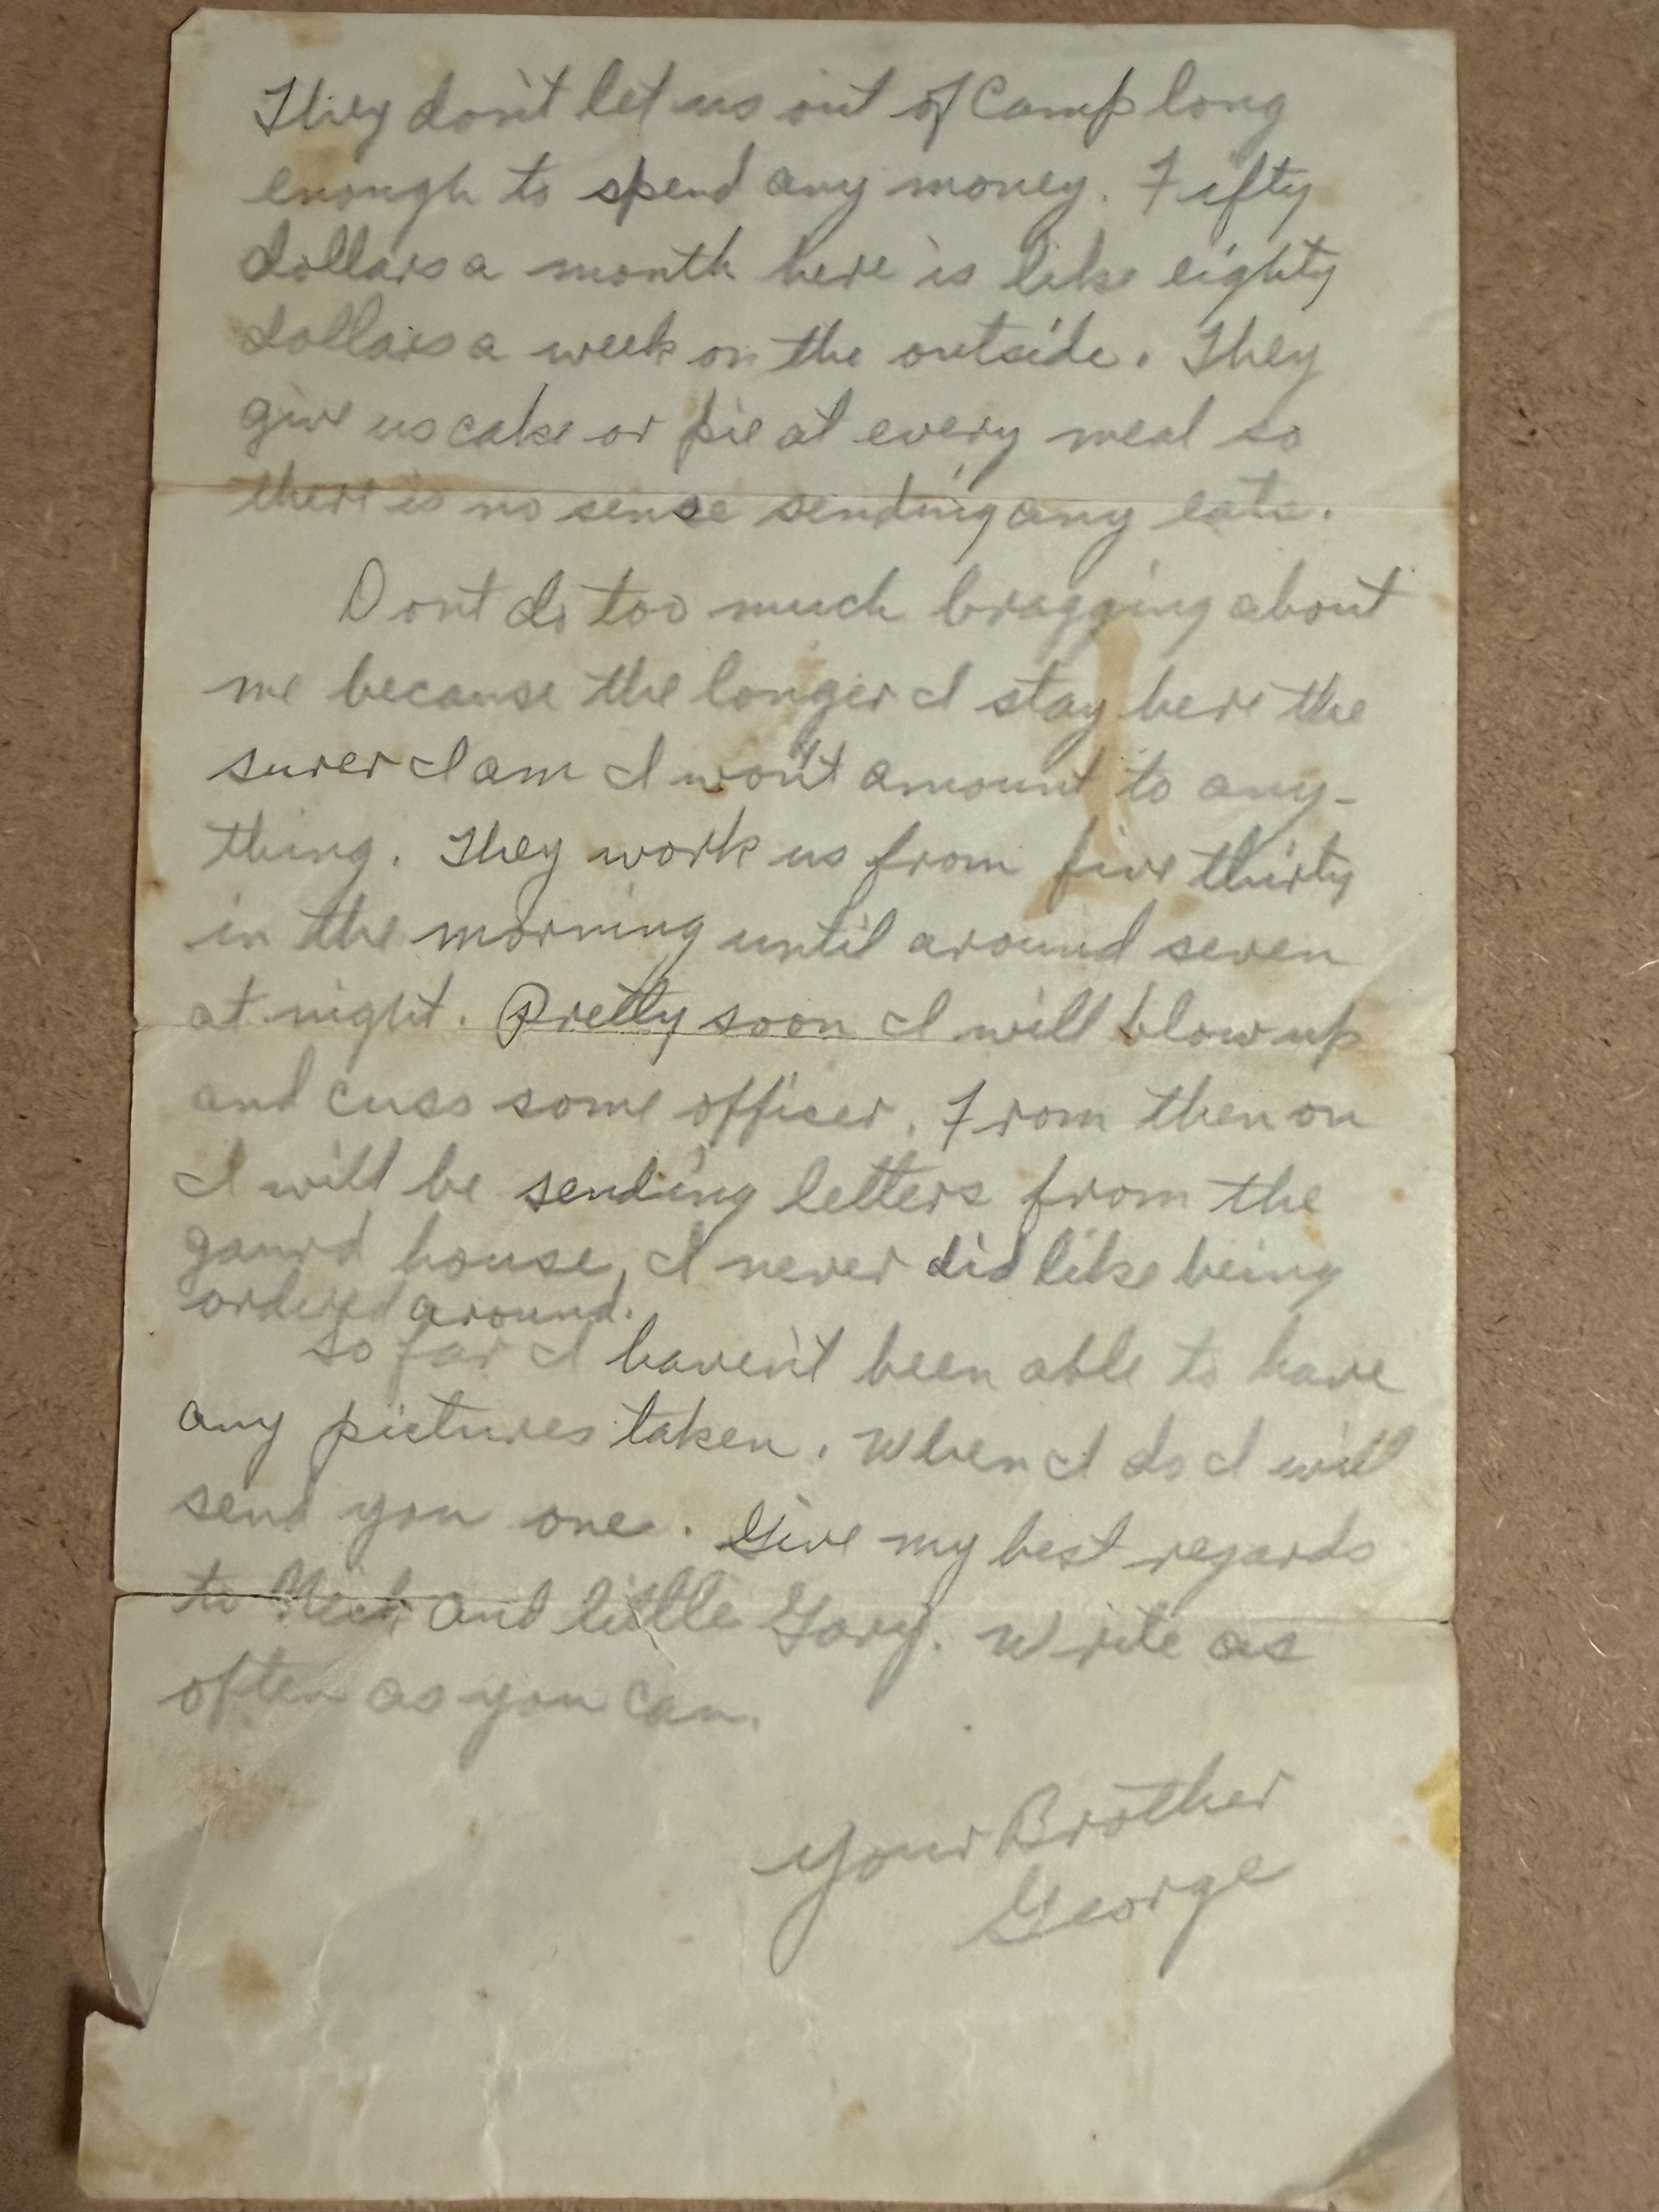 They don't let us out of Camp long
enough to spend any money. Fifty
dollars a month here is like eighty
dollars a week on the outside. They
give us cake or pie at every meal so
there is no sense sending any eats.
Dont do too much bragging about
me because the longer I stay here the
surer I am I won't amount to any-
thing. They work us from five thirty
in the morning until around seven
at night. Pretty soon I will blow up
and cuss some officer. From then on
I will be sending letters from the
gaurd house, I never did like being
ordered around.
So far I haven't been able to have
any pictures taken. When I do I will
send you one. Give my best regards
to and little Gary. Write as
often as you can.
Your Brother
George